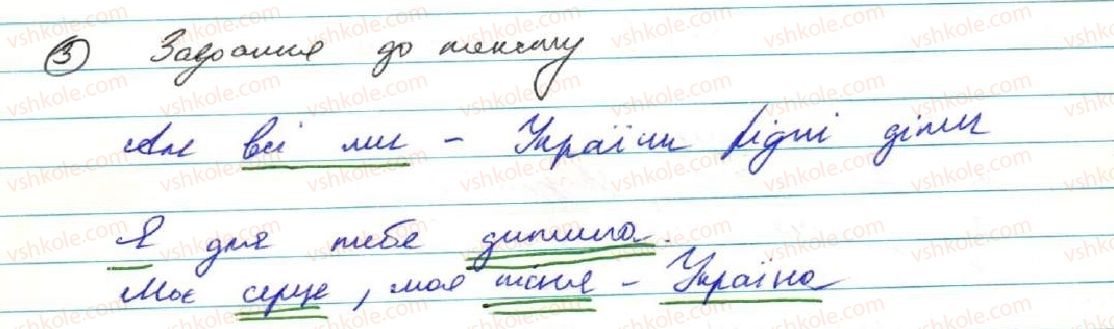 ③ Завдання до тексту
Але всі ми – України рідні діти
Я для тебе дитина.
Моє серце, моя пісня – Україна